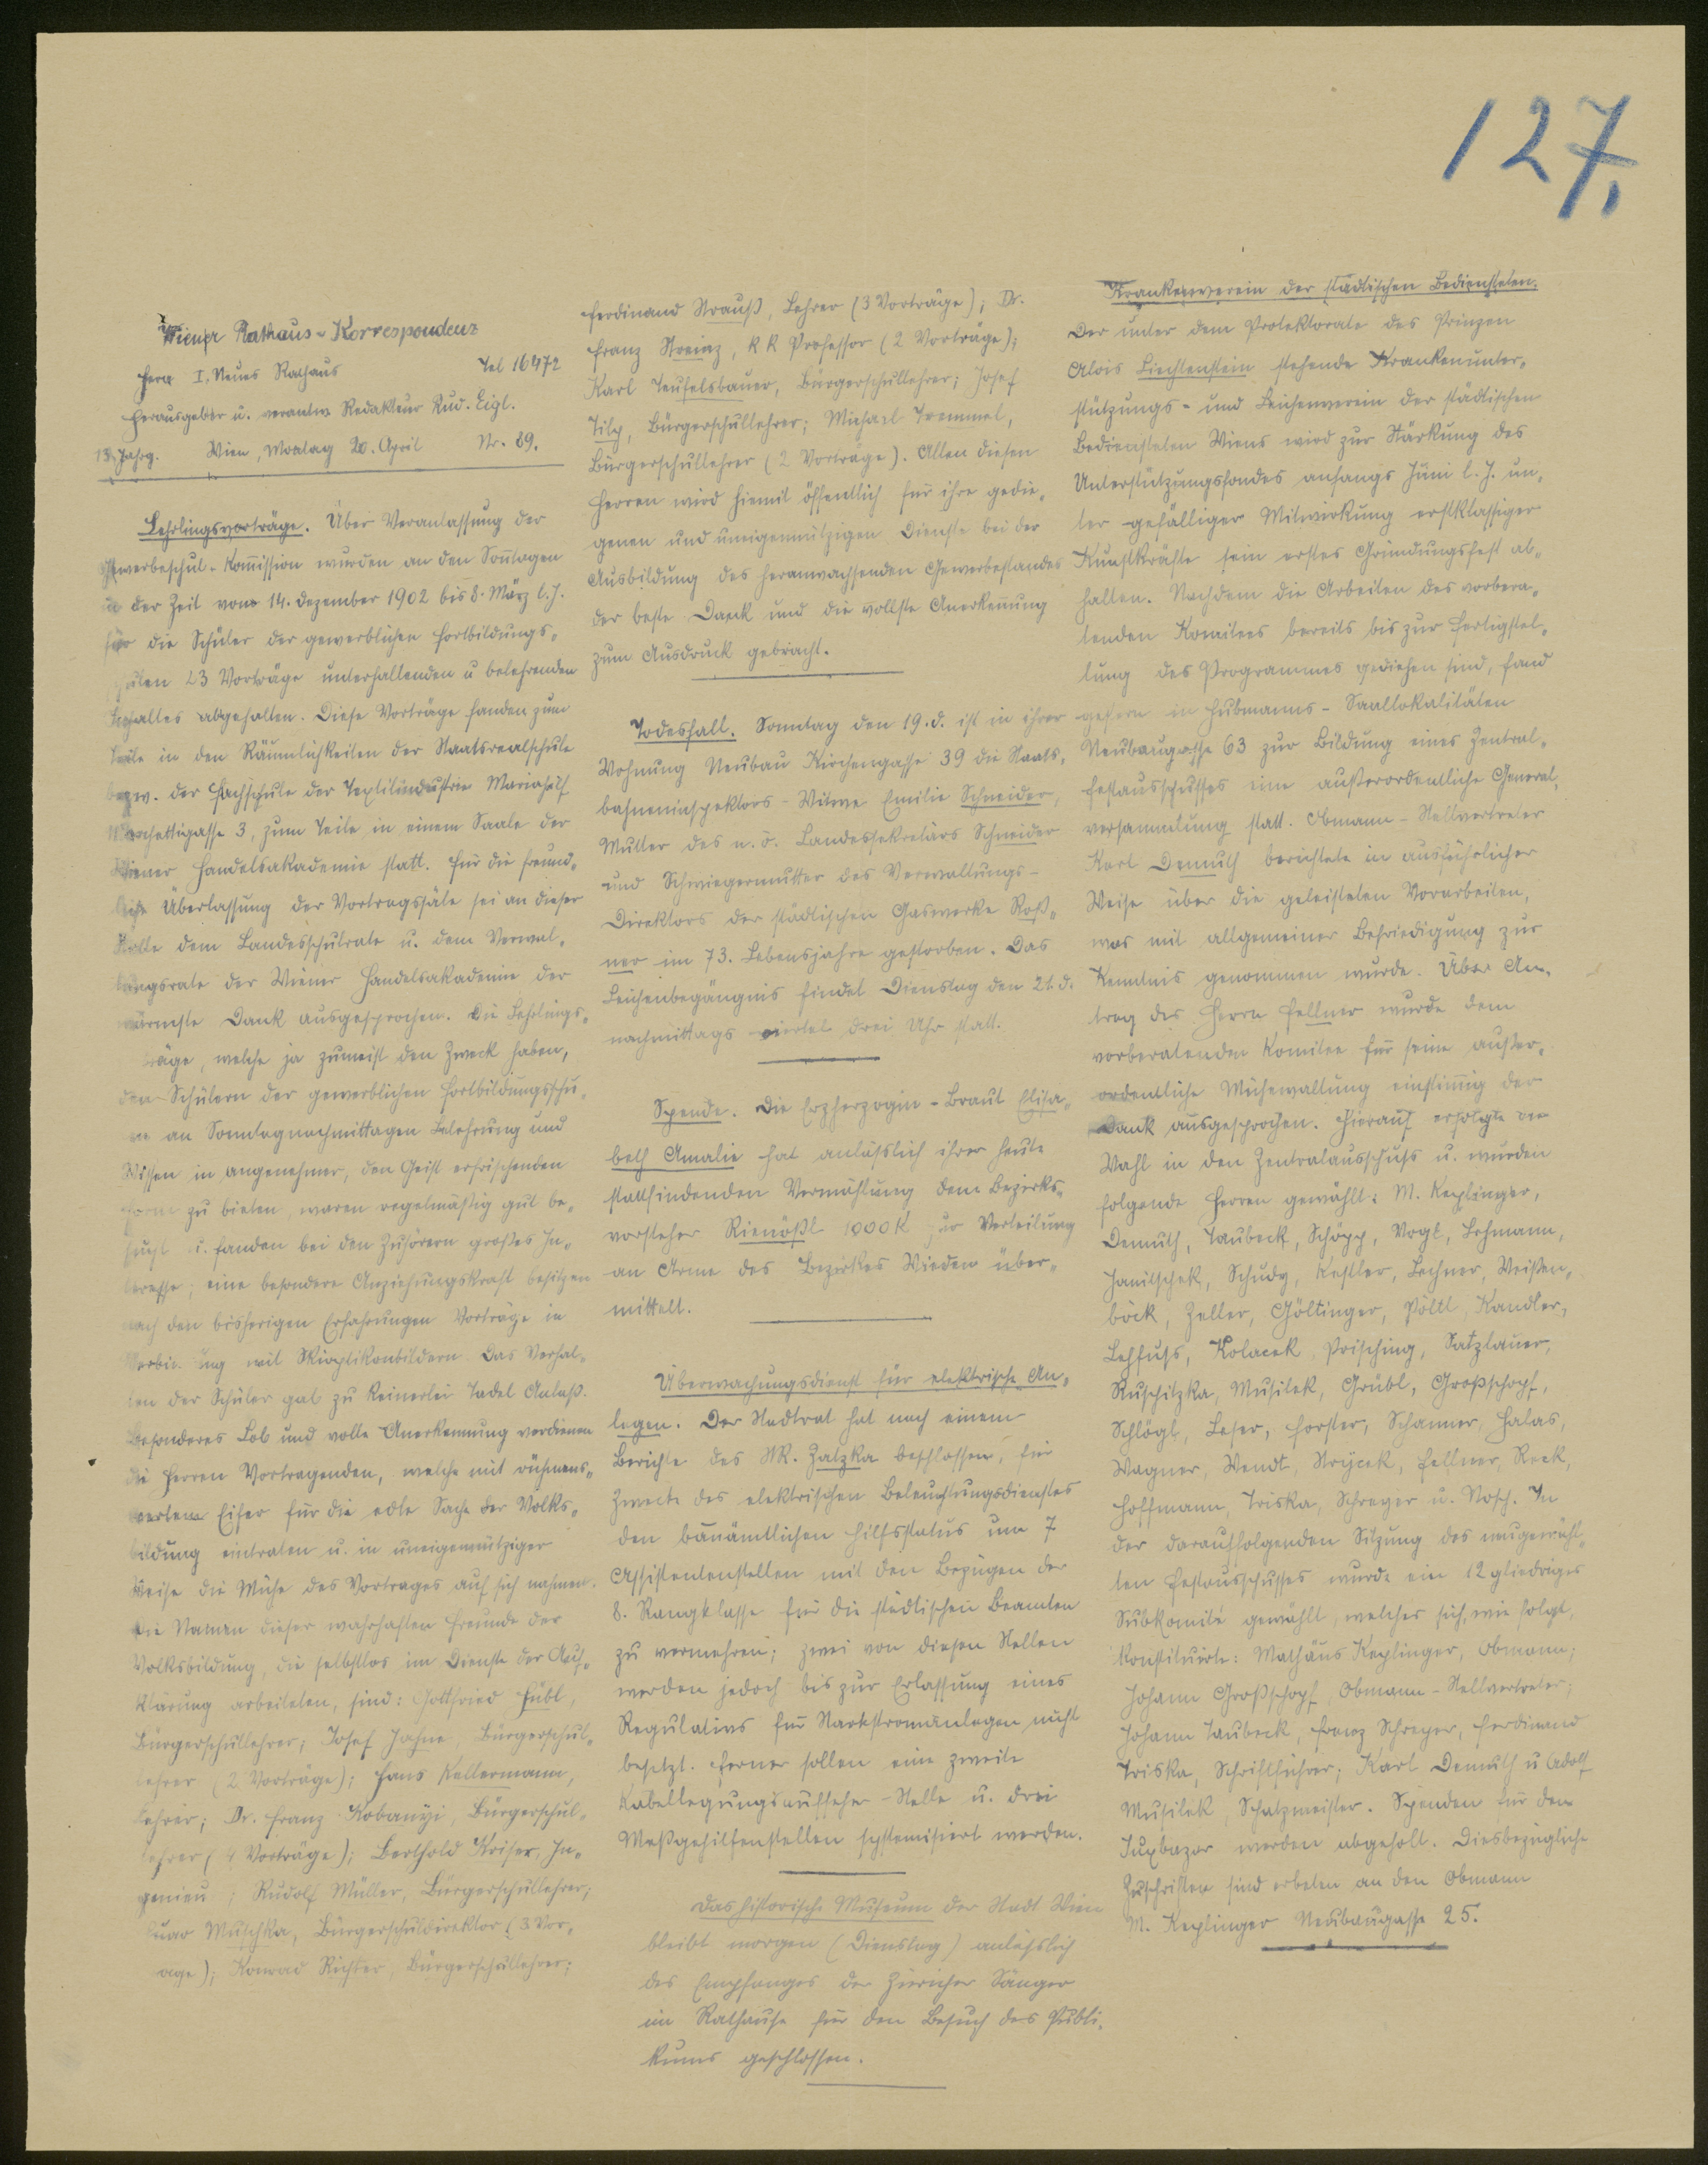 127.
Wiener Rathaus-Korrespondenz
Wien I, Neues Rathaus Tel 16472
Herausgeber u. verantw Redakteur Rud. Eigl.
13. Jahrg. Wien, Montag 20. April Nr. 89.
Lehrlingsvorträge. Über Veranlassung der
Gewerbeschul-Kom̅ission wurden an den Son̅tagen
in der Zeit vom 14. Dezember 1902 bis 8. März l. J.
für die Schüler der gewerblichen Fortbildungs-
schulen 23 Vorträge unterhaltenden u belehrenden
Inhaltes abgehalten. Diese Vorträge fanden zum
Teile in den Räumlichkeiten der Staatsrealschule
bezw. der Fachschule der Textilindustrie Mariahilf
Marchettigasse 3, zum Teile in einem Saale der
Wiener Handelsakademie statt. Für die freund-
liche Überlassung der Vortragssäle sei an dieser
Stelle dem Landesschulrate u. dem Verwal-
tungsrate der Wiener Handelsakademie der
wärmste Dank ausgesprochen. Die Lehrlings-
träge, welche ja zumeist den Zweck haben,
den Schülern der gewerblichen Fortbildungsschu-
len an Sonntagnachmittagen Belehrung und
Wissen in angenehmer, den Geist erfrischenden
Form zu bieten, waren regelmäßig gut be-
sucht u. fanden bei den Zuhörern großes In-
teresse; eine besondere Anziehungskraft besitzen
nach den bisherigen Erfahrungen Vorträge in
Verbindung mit Skioptikonbildern. Das Verhal-
ten der Schüler gab zu keinerlei Tadel Anlaß.
Besonderes Lob und volle Anerkennung verdienen
die Herren Vortragenden, welche mit rühmens-
wertem Eifer für die edle Sache der Volks-
bildung eintraten u. in uneigennütziger
Weise die Mühe des Vortrages auf sich nahmen.
Die Namen dieser wahrhaften Freunde der
Volksbildung, die selbstlos im Dienste der Auf-
klärung arbeiteten, sind: Gottfried Hübl,
Bürgerschullehrer; Josef Jahne, Bürgerschul-
lehrer (2 Vorträge); Hans Kellermann,
Lehrer; Dr. Franz Kobanyi, Bürgerschul-
lehrer (4 Vorträge); Berthold Kaiser, In-
genieur; Rudolf Müller, Bürgerschullehrer;
Muschka, Bürgerschuldirektor (3 Vor-
träge); Konrad Richter, Bürgerschullehrer;
Ferdinand Strauß, Lehrer (3 Vorträge); Dr.
Franz Streinz, k k Professor (2 Vorträge);
Karl Teufelsbauer, Bürgerschullehrer; Josef
Tilp, Bürgerschullehrer; Michael Tremmel,
Bürgerschullehrer (2 Vorträge). Allen diesen
Herren wird hiemit öffentlich für ihre gedie-
genen und uneigennützigen Dienste bei der
Ausbildung des heranwachsenden Gewerbestandes
der beste Dank und die vollste Anerken̅ung
zum Ausdruck gebracht.
Todesfall. Sonntag den 19. d. ist in ihrer
Wohnung Neubau Kirchengasse 39 die Staats-
bahneninspektors-Witwe Emilie Schneider,
Mutter des n. ö. Landessekretärs Schneider
und Schwiegermutter des Verwaltungs-
Direktors der städtischen Gaswerke Roß-
ner im 73. Lebensjahre gestorben. Das
Leichenbegängnis findet Dienstag den 21. d.
nachmittags viertel drei Uhr statt.
Spende. Die Erzherzogin-Braut Elisa-
beth Amalie hat anläßlich ihrer heute
stattfindenden Vermählung dem Bezirks-
vorsteher Rienößl 1000 K zur Verteilung
an Arme des Bezirkes Wieden über-
mittelt.
Überwachungsdienst für elektrische An-
lagen. Der Stadtrat hat nach einem
Berichte des StR. Zatzka beschlossen, für
Zwecke des elektrischen Beleuchtungsdienstes
den bauämtlichen Hilfsstatus um 7
Assistentenstellen mit den Bezügen der
8. Rangklasse für die städtischen Beamten
zu vermehren; zwei von diesen Stellen
werden jedoch bis zur Erlassung eines
Regulativs für Starkstromanlagen nicht
besetzt. Ferner sollen eine zweite
Kabellegungsaufseher-Stelle u. drei
Meßgehilfenstellen systemisiert werden.
Das historische Museum der Stadt Wien
bleibt morgen (Dienstag) anläßlich
des Empfanges der Züricher Sänger
im Rathause für den Besuch des Publi-
kums geschlossen.
Krankenverein der städtischen Bediensteten.
Der unter dem Protektorate des Prinzen
Alois Liechtenstein stehende Krankenunter-
stützungs- und Leichenverein der städtischen
Bediensteten Wiens wird zur Stärkung des
Unterstützungsfondes anfangs Juni l. J. un-
ter gefälliger Mitwirkung erstklassiger
Kunstkräfte sein erstes Gründungsfest ab-
halten. Nachdem die Arbeiten des vorbera-
tenden Komitees bereits bis zur Fertigstel-
lung des Programmes gediehen sind, fand
gestern in Hubmanns-Saallokalitäten
Neubaugasse 63 zur Bildung eines Zentral-
festausschusses eine außerordentliche General-
versammlung statt. Obmann-Stellvertreter
Karl Demuth berichtete in ausführlicher
Weise über die geleisteten Vorarbeiten,
was mit allgemeiner Befriedigung zur
Kenntnis genommen wurde. Über An-
trag des Herrn Fellner wurde dem
vorberatenden Komitee für seine außer-
ordentliche Mühewaltung einstim̅ig der
Dank ausgesprochen. Hierauf erfolgte die
Wahl in den Zentralausschuß u. wurden
folgende Herren gewählt: M. Keplinger,
Demuth, Taubeck, Schöpp, Vogl, Lehmann,
Janitschek, Schudy, Kestler, Lechner, Weißen-
böck, Zeller, Göltinger, Pöltl, Kandler,
Lehfuß, Kolacek, Prisching, Satzlauer,
Ruschitzka, Musilek, Grübl, Großschopf,
Schlögl, Leser, Forster, Schanner, Halas,
Wagner, Wendt, Strycek, Fellner, Reck,
Hoffmann, Triska, Schreyer u. Nosch. In
der darauffolgenden Sitzung des neugewähl-
ten Festausschusses wurde ein 12 gliedriges
Subkomité gewählt, welches sich, wie folgt,
konstituirte: Mathäus Keplinger, Obmann;
Johann Großschopf, Obmann-Stellvertreter;
Johann Taubeck, Franz Schreyer, Ferdinand
Triska, Schriftführer; Karl Demuth u Adolf
Musilek, Schatzmeister. Spenden für den
Juxbazar werden abgeholt. Diesbezügliche
Zuschriften sind erbeten an den Obmann
M. Keplinger Neubaugasse 25.